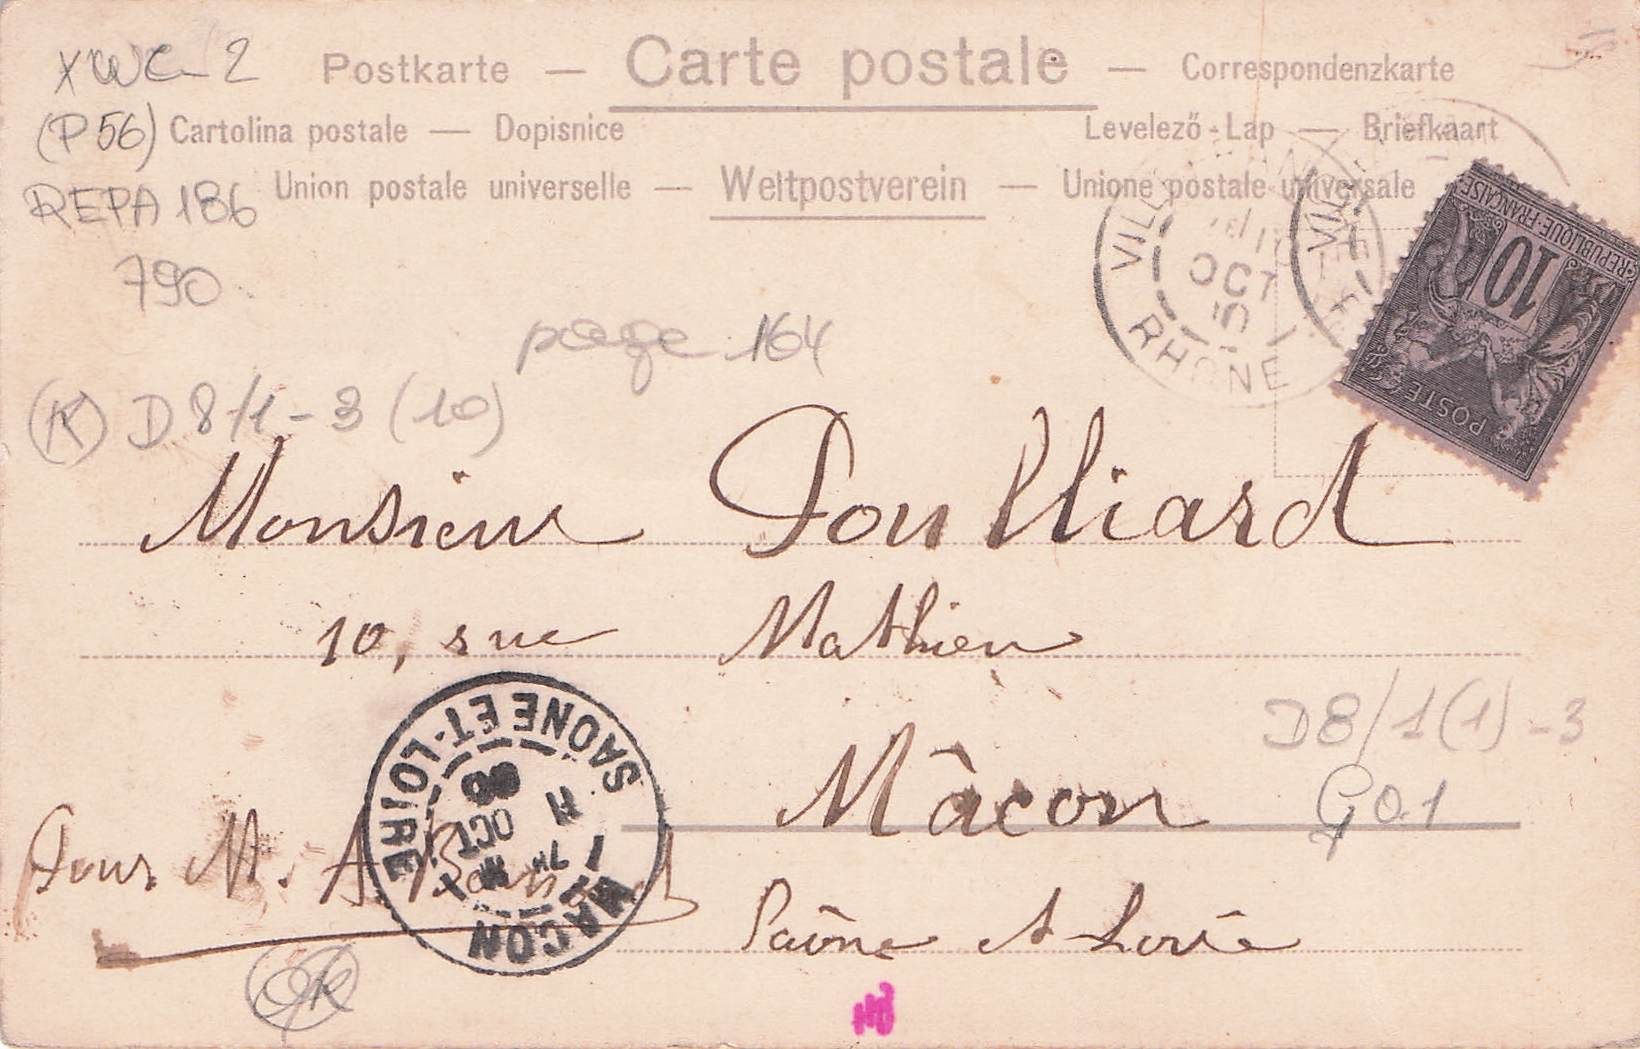 XWC-2
Postkarte — Carte postale — Correspondenzkarte
(P56) Cartolina postale — Dopisnice Levelező-Lap — Briefkaart
REPA 186 Union postale universelle — Weltpostverein — Unione postale universale
790
VILL
OCT
RHONE
VILLE
REPUBLIQUE·FRANÇAISE
10
POSTE
page 164
(K) D8/1-3 (10)
Monsieur Poulliard
10, rue Mathieu
D8/1(1)-3
Mâcon
G01
SAONE ET-LOIRE
11
OCT
7H
MACON
Pour M. A.
Saône et Loire